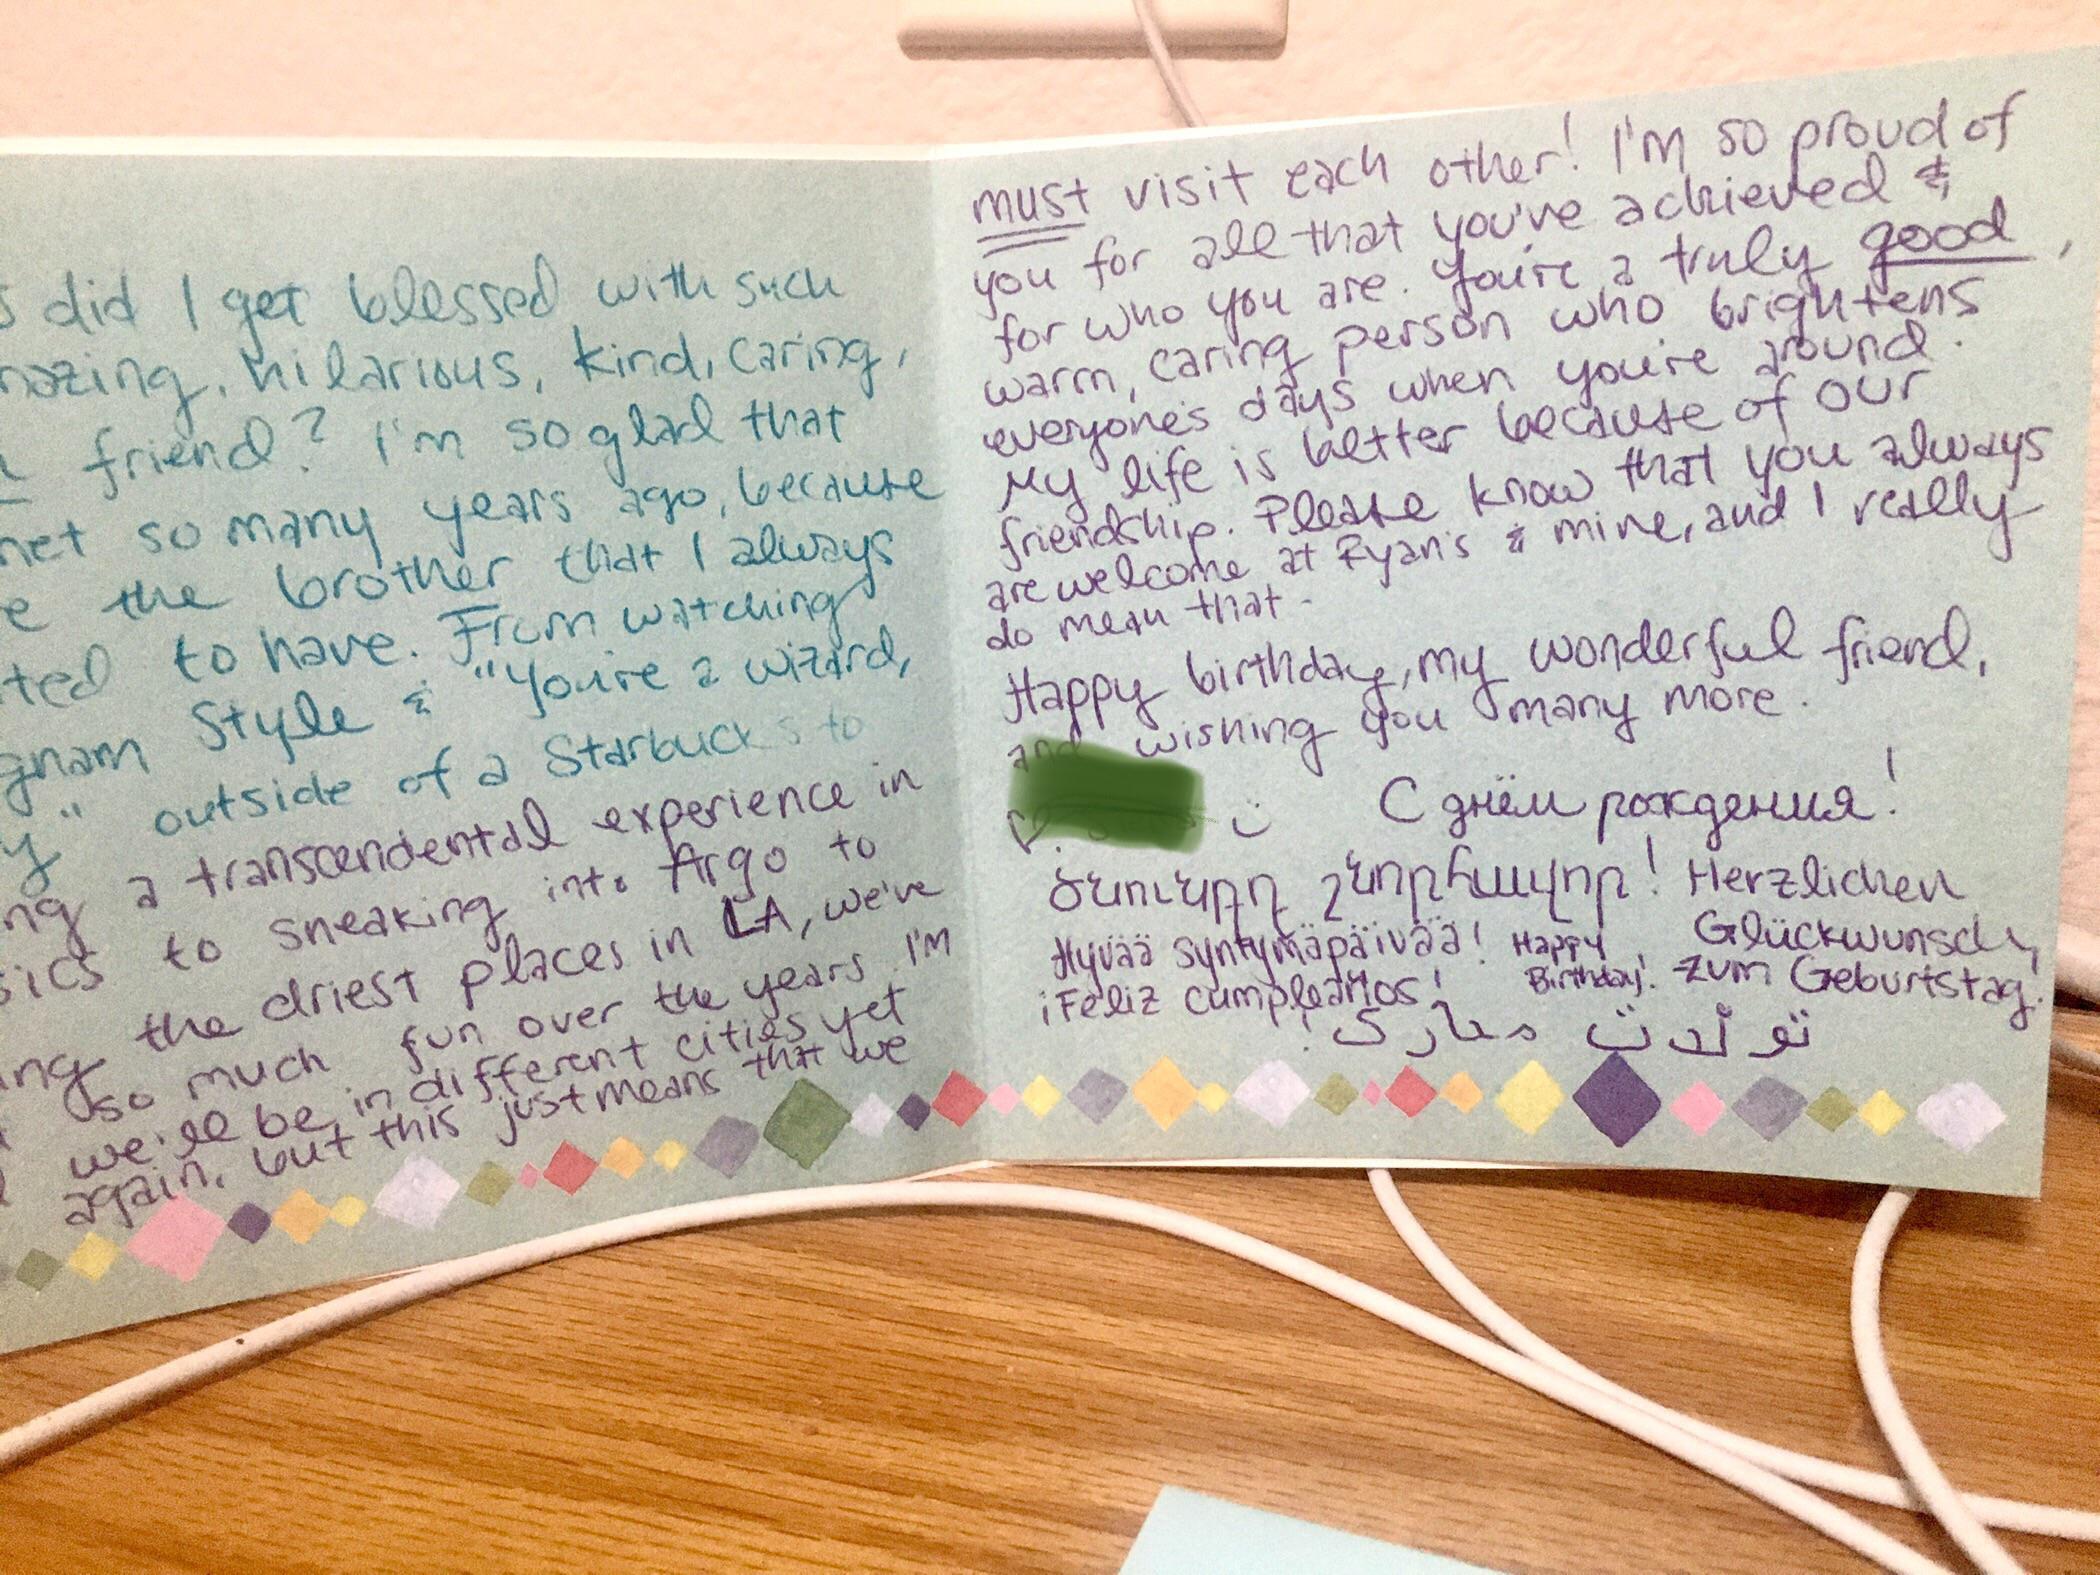 did I get blessed with such
hilarious, kind, caring,
friend? I'm so glad that
so many years ago, because
the brother that I always
to have. From watching
Style & "You're a wizard,
" outside of a Starbucks to
a transcendental experience in
to sneaking into Argo to
the driest places in LA, we've
so much fun over the years. I'm
we'll be in different cities yet
again, but this just means that we
must visit each other! I'm so proud of
you for all that you've achieved &
for who you are. You're a truly good,
warm, caring person who brightens
everyone's days when you're around.
My life is better because of our
friendship. Please know that you always
are welcome at Ryan's & mine, and I really
do mean that.
Happy birthday, my wonderful friend,
and wishing you many more.
С днём рождения!
Ծնունդդ շնորհավոր! Herzlichen
Glückwunsch
Hyvää syntymäpäivää! Happy
Birthday! zum Geburtstag!
¡Feliz cumpleaños!
تولدت مبارک!